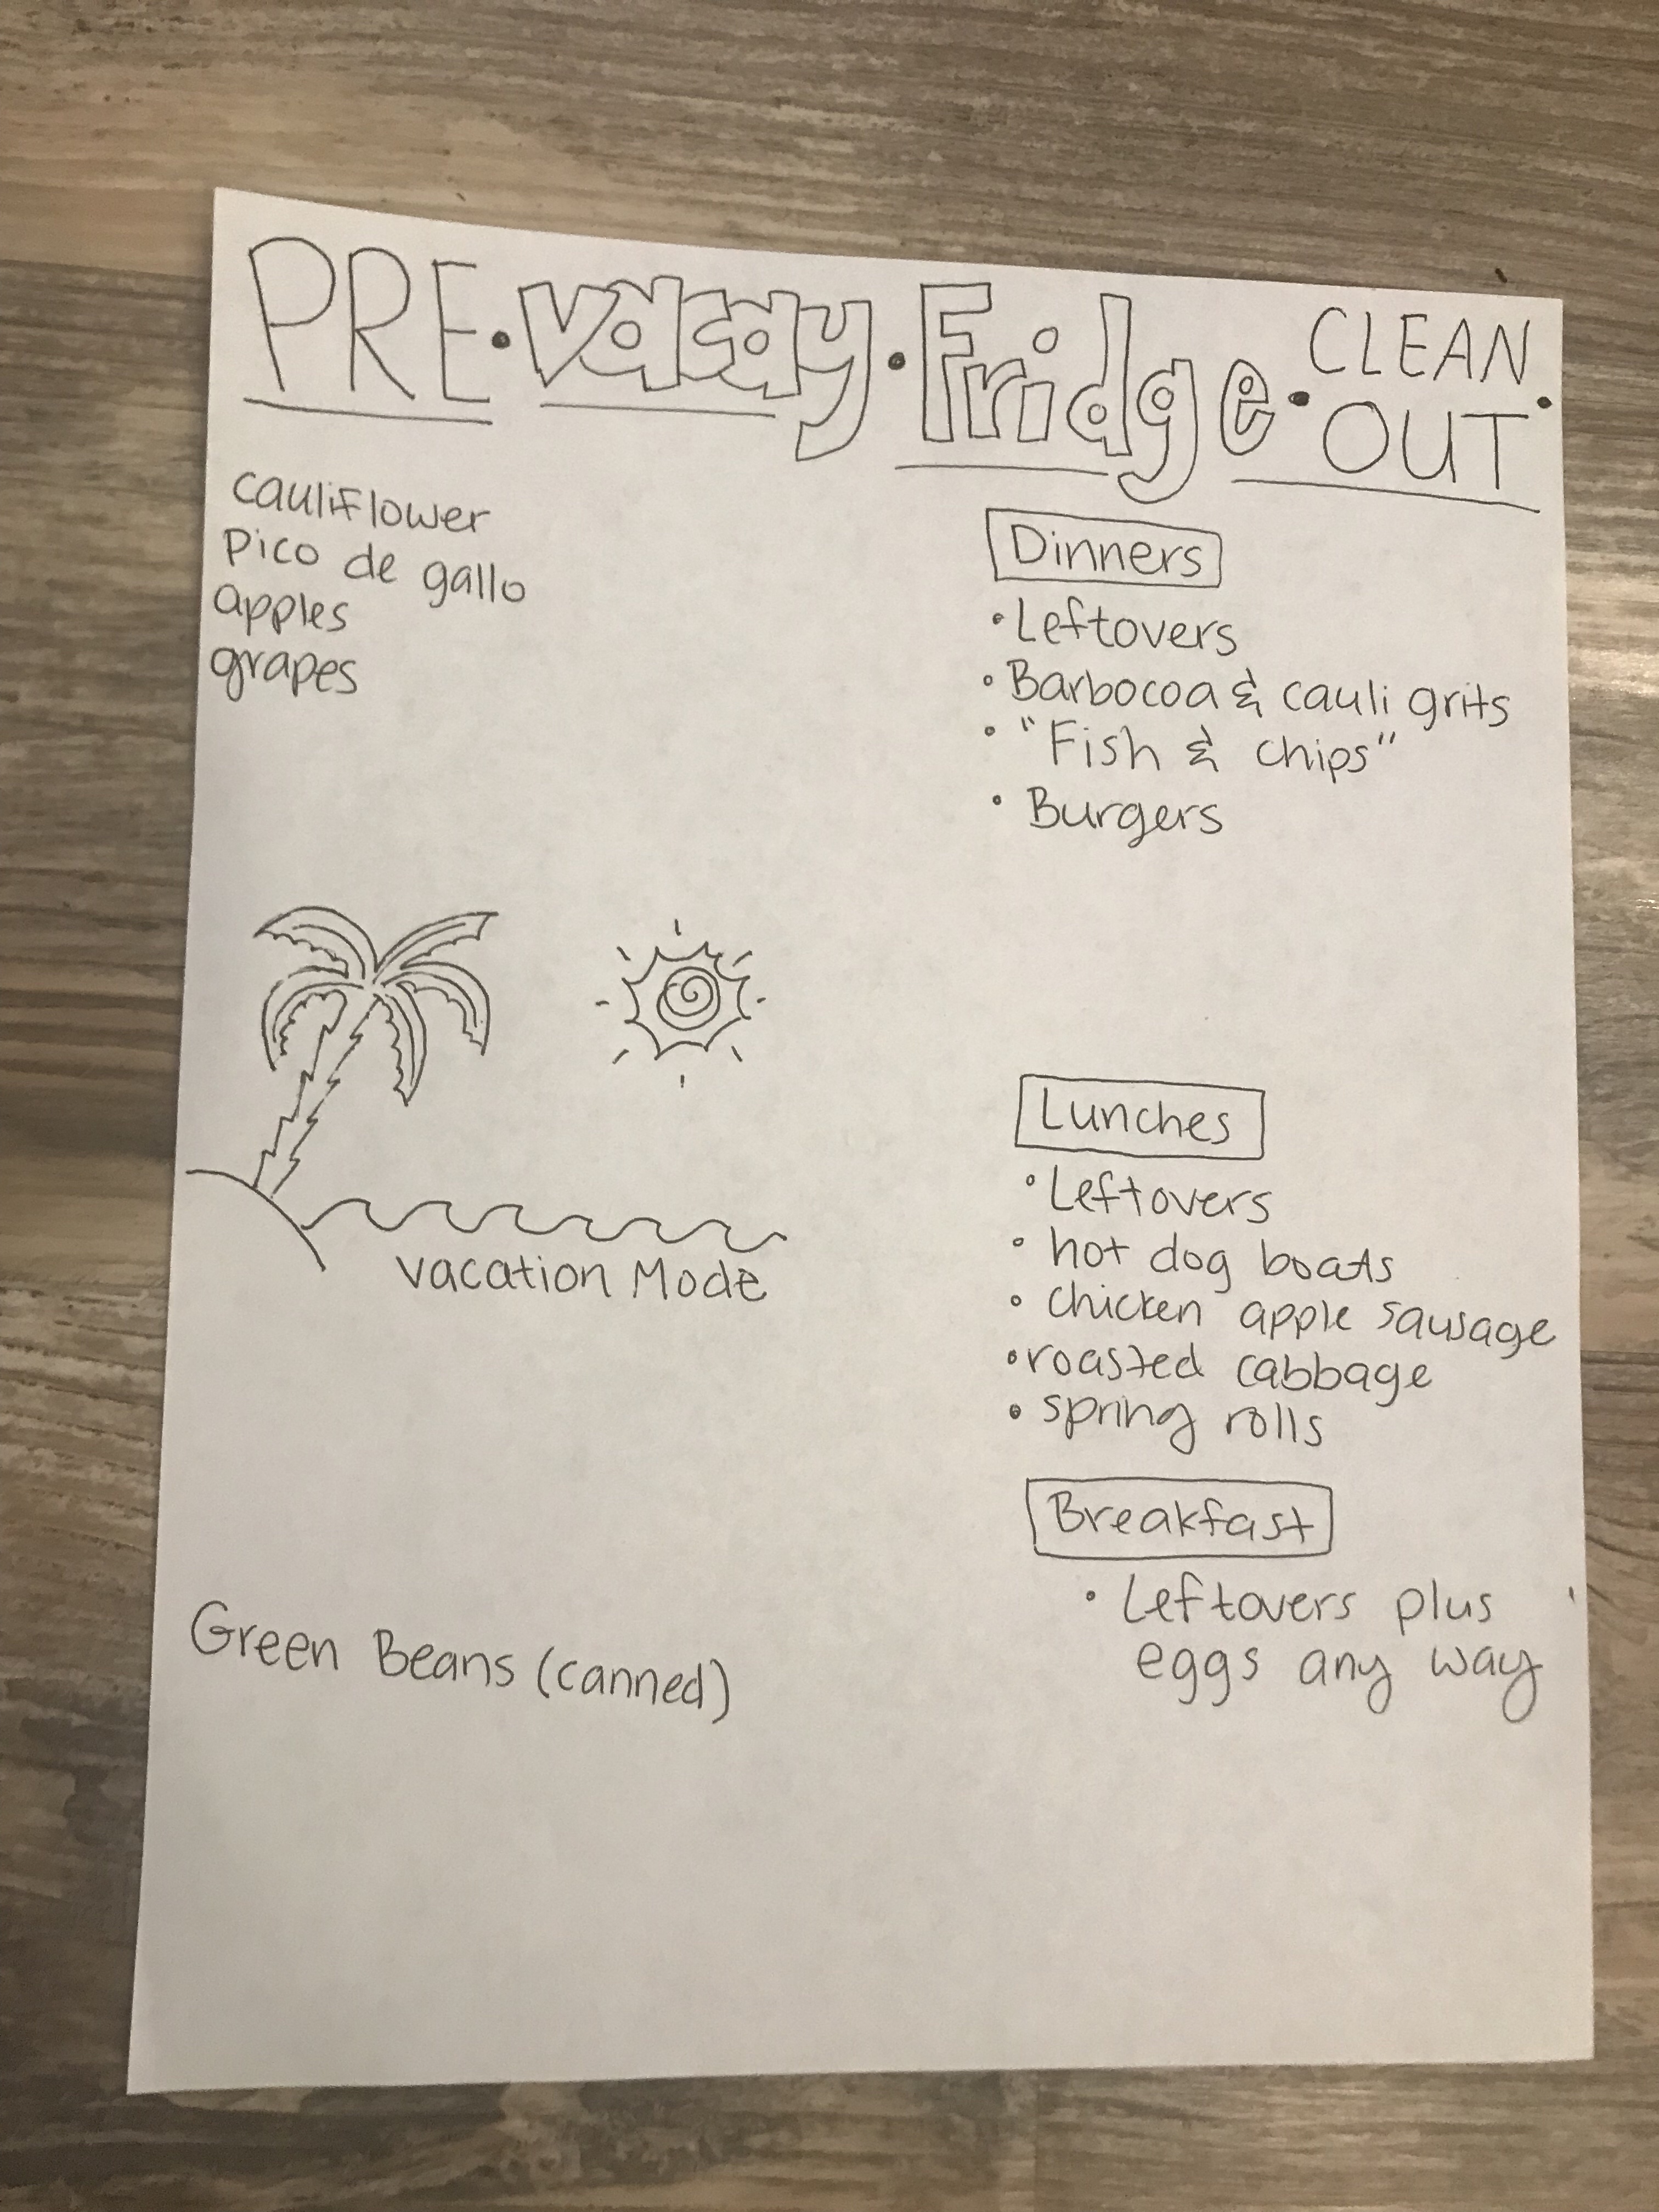 PRE • vacay • Fridge • CLEAN OUT •
cauliflower
Pico de gallo
apples
grapes
Dinners
• Leftovers
• Barbocoa & cauli grits
• "Fish & chips"
• Burgers
vacation Mode
Lunches
• Leftovers
• hot dog boats
• chicken apple sausage
• roasted cabbage
• spring rolls
Breakfast
• Leftovers plus
eggs any way
Green Beans (canned)